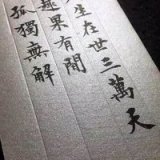 生在世三萬天
趣果有間
孤獨無解